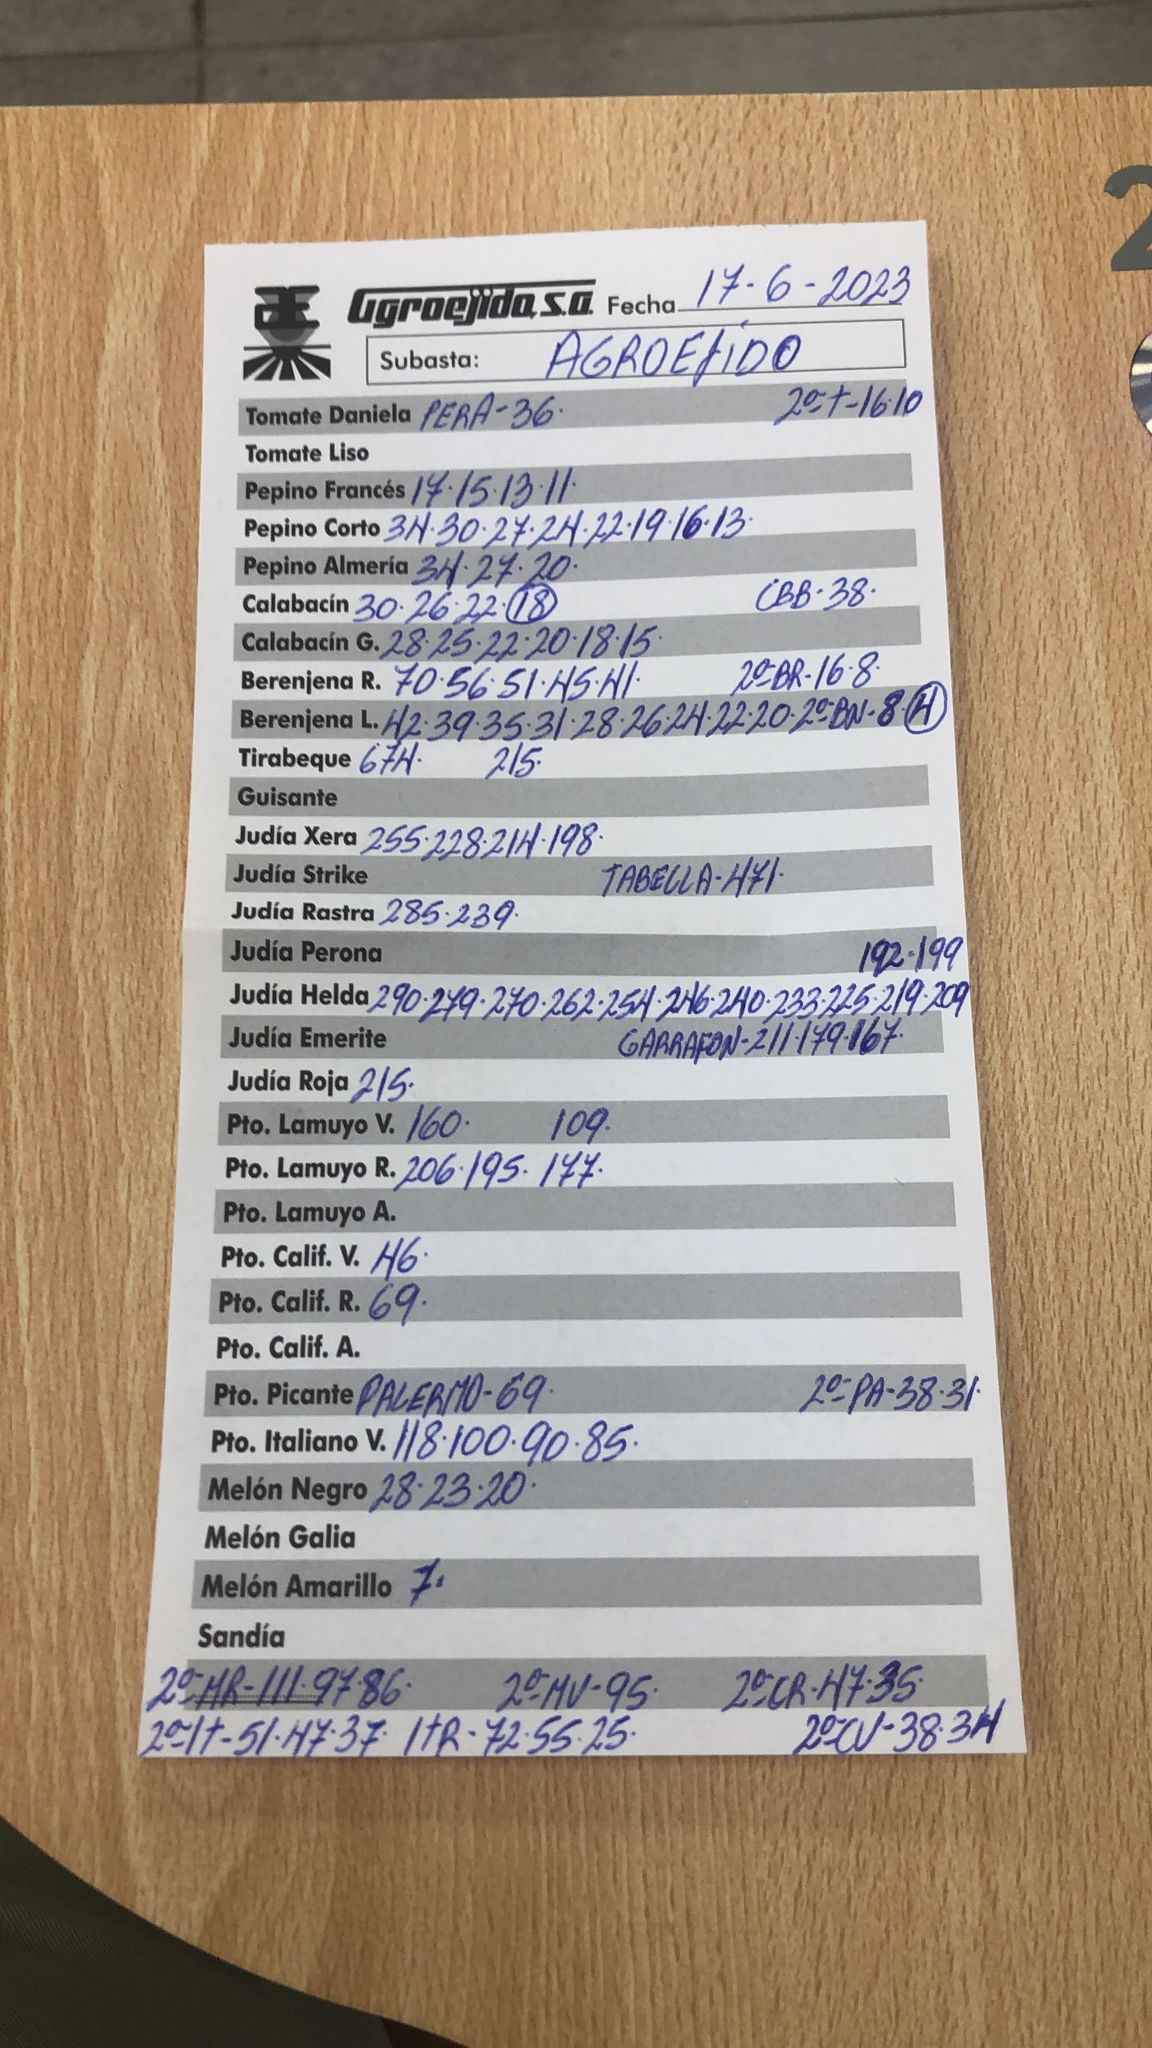 Agroejido, S.A. Fecha 17-6-2023
Subasta: AGROEJIDO
Tomate Daniela PERA-36. 2º-t-16.10
Tomate Liso
Pepino Francés 17.15.13.11.
Pepino Corto 34.30.27.24.22.19.16.13.
Pepino Almería 34.27.20.
Calabacín 30.26.22.18 CBB.38.
Calabacín G. 28.25.22.20.18.15.
Berenjena R. 70.56.51.45.41. 2º-BR-16.8.
Berenjena L. 42.39.35.31.28.26.24.22.20.2º-BN-8.4
Tirabeque 674. 215.
Guisante
Judía Xera 255.228.214.198.
Judía Strike TABELLA-471.
Judía Rastra 285.239.
Judía Perona 192.199
Judía Helda 290.279.270.262.254.246.240.233.225.219.209
Judía Emerite GARRAFON-211.179.167.
Judía Roja 215.
Pto. Lamuyo V. 160. 109.
Pto. Lamuyo R. 206.195. 177.
Pto. Lamuyo A.
Pto. Calif. V. 46.
Pto. Calif. R. 69.
Pto. Calif. A.
Pto. Picante PALERMO-69. 2º-PA-38.31.
Pto. Italiano V. 118.100.90.85.
Melón Negro 28.23.20.
Melón Galia
Melón Amarillo 7.
Sandía
2º-MR-111.97.86. 2º-MV-95. 2º-CR-47.35.
2º-It-51.47.37. ItR-72.55.25. 2º-CV-38.34
2